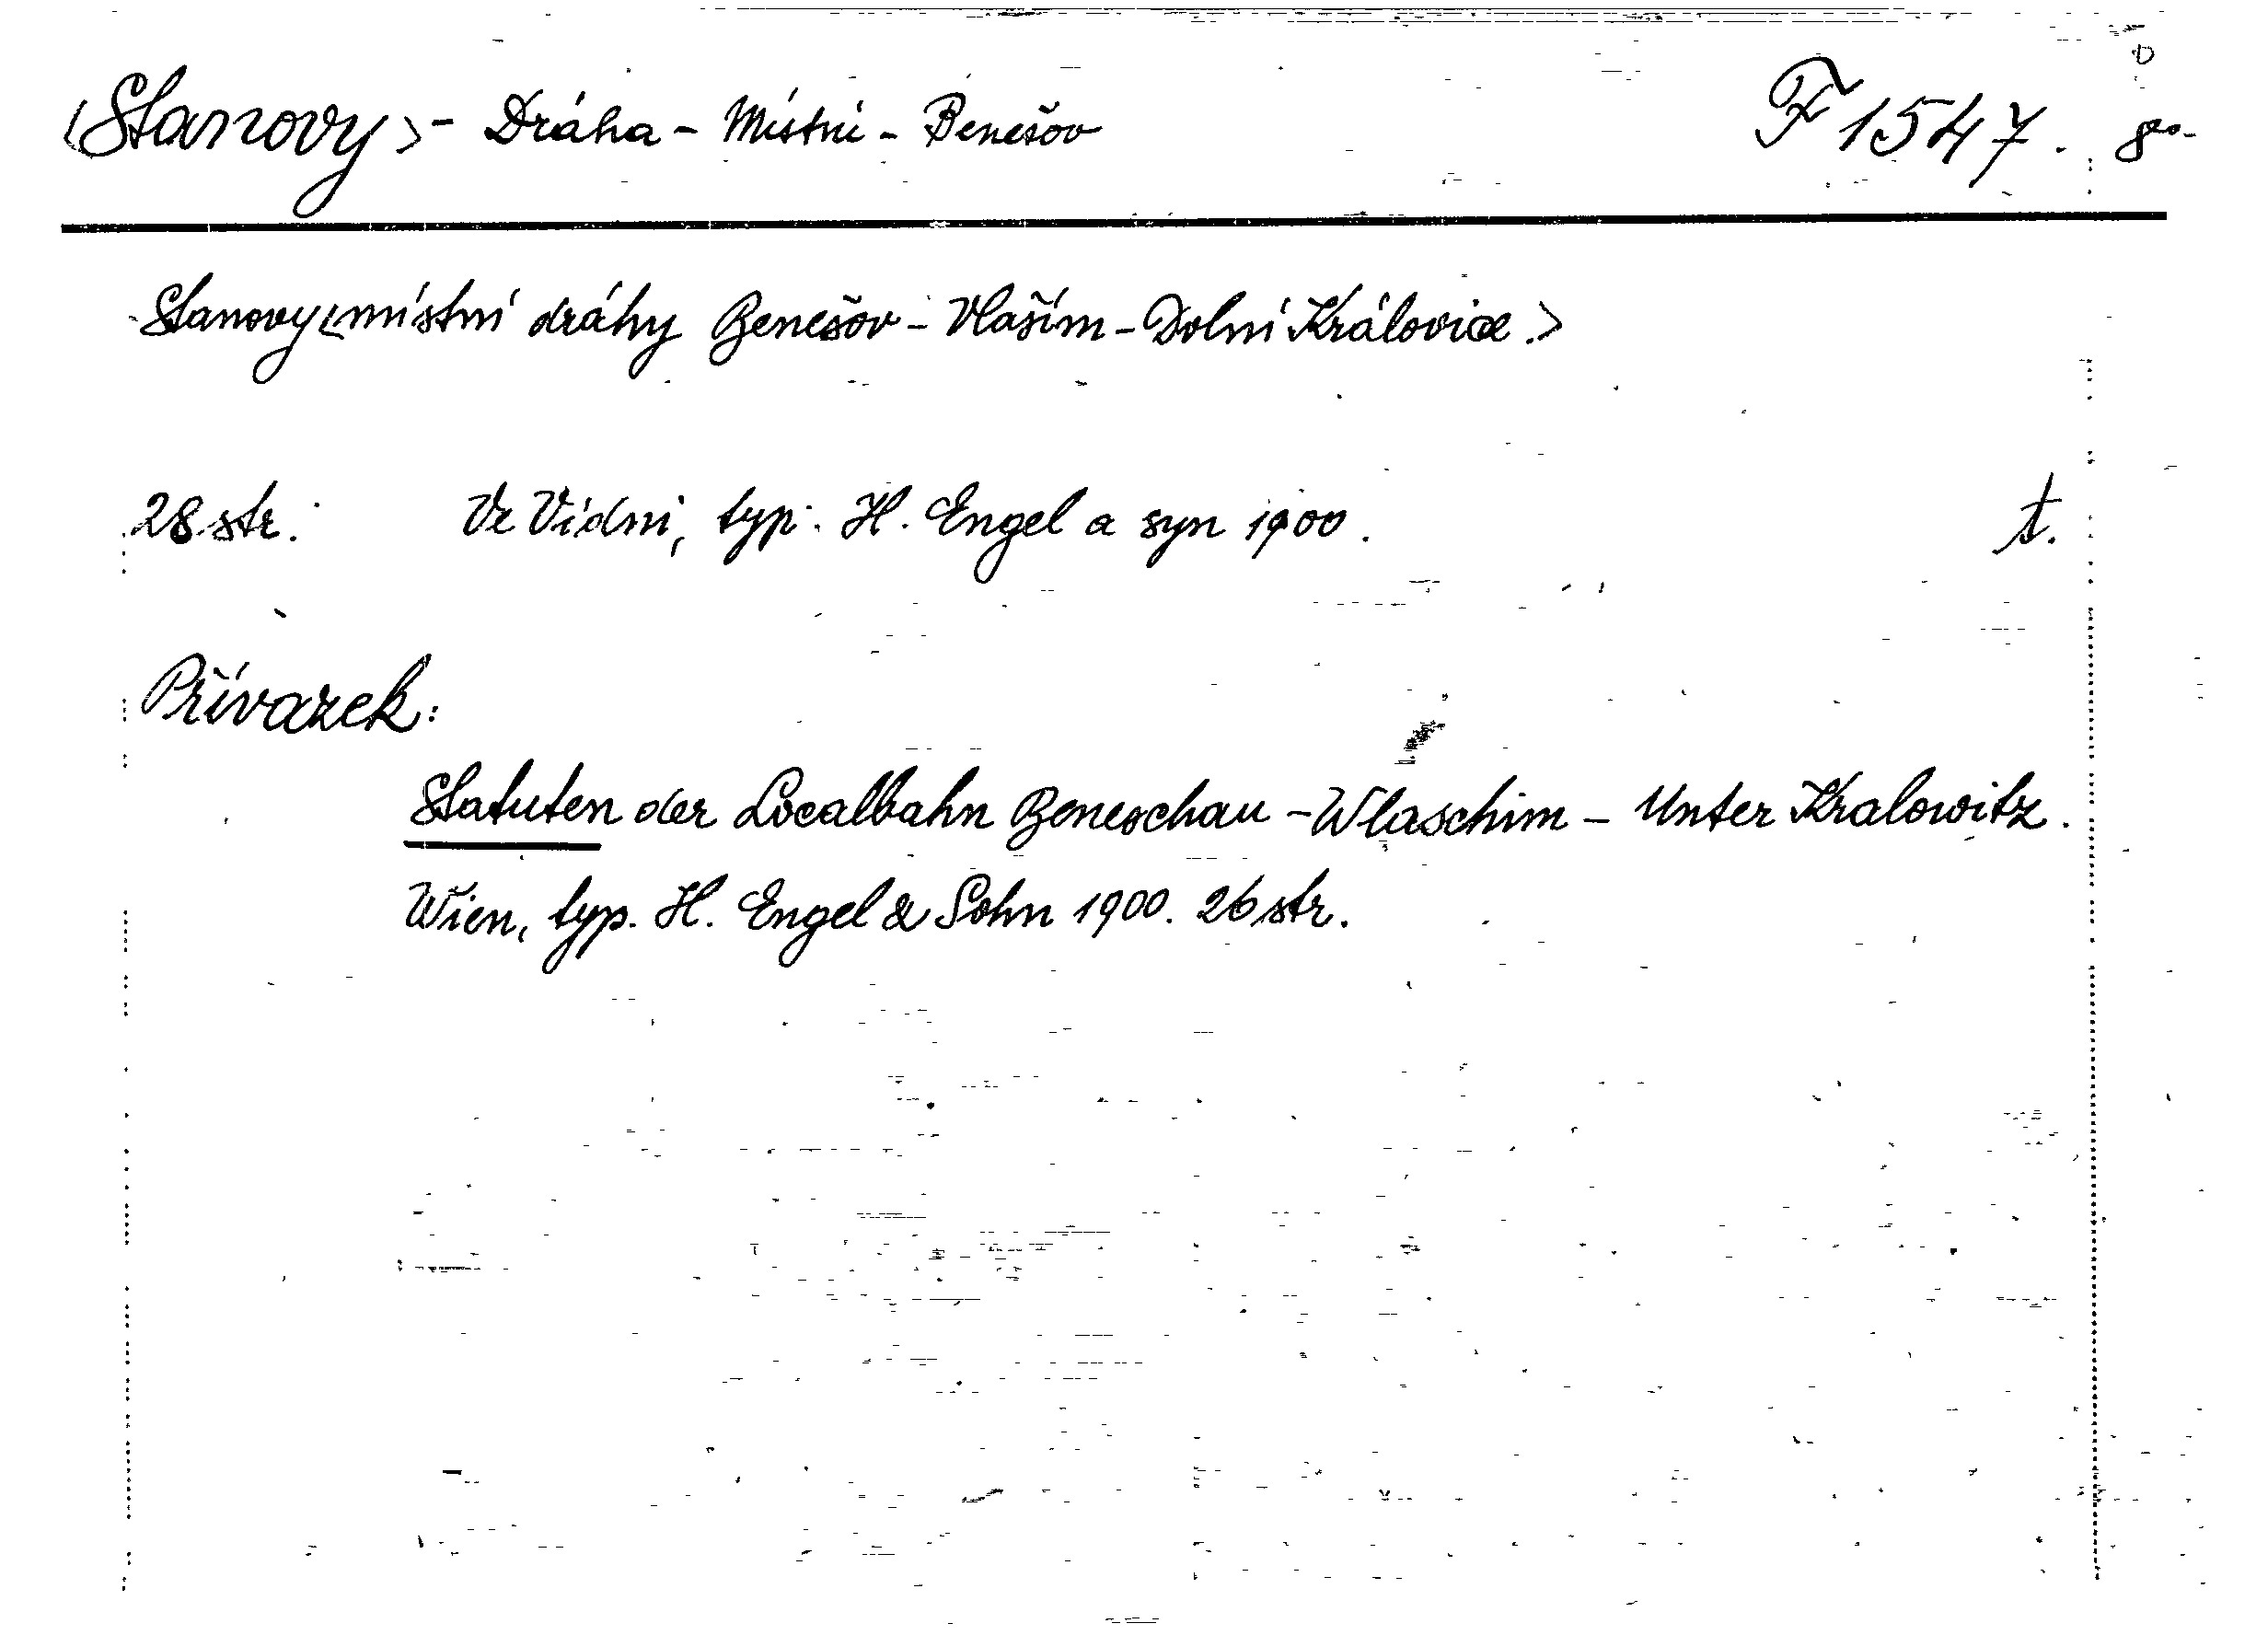 <Stanovy> - Dráha - Místní - Benešov F 1547. 8°-
Stanovy <místní dráhy Benešov - Vlaším - Dolní Královice.>
28 str. Ve Vídni, typ. H. Engel a syn 1900. t.
Přívazek:
Statuten der Localbahn Beneschau - Wlaschim - Unter Kralowitz.
Wien, typ. H. Engel & Sohn 1900. 26 str.